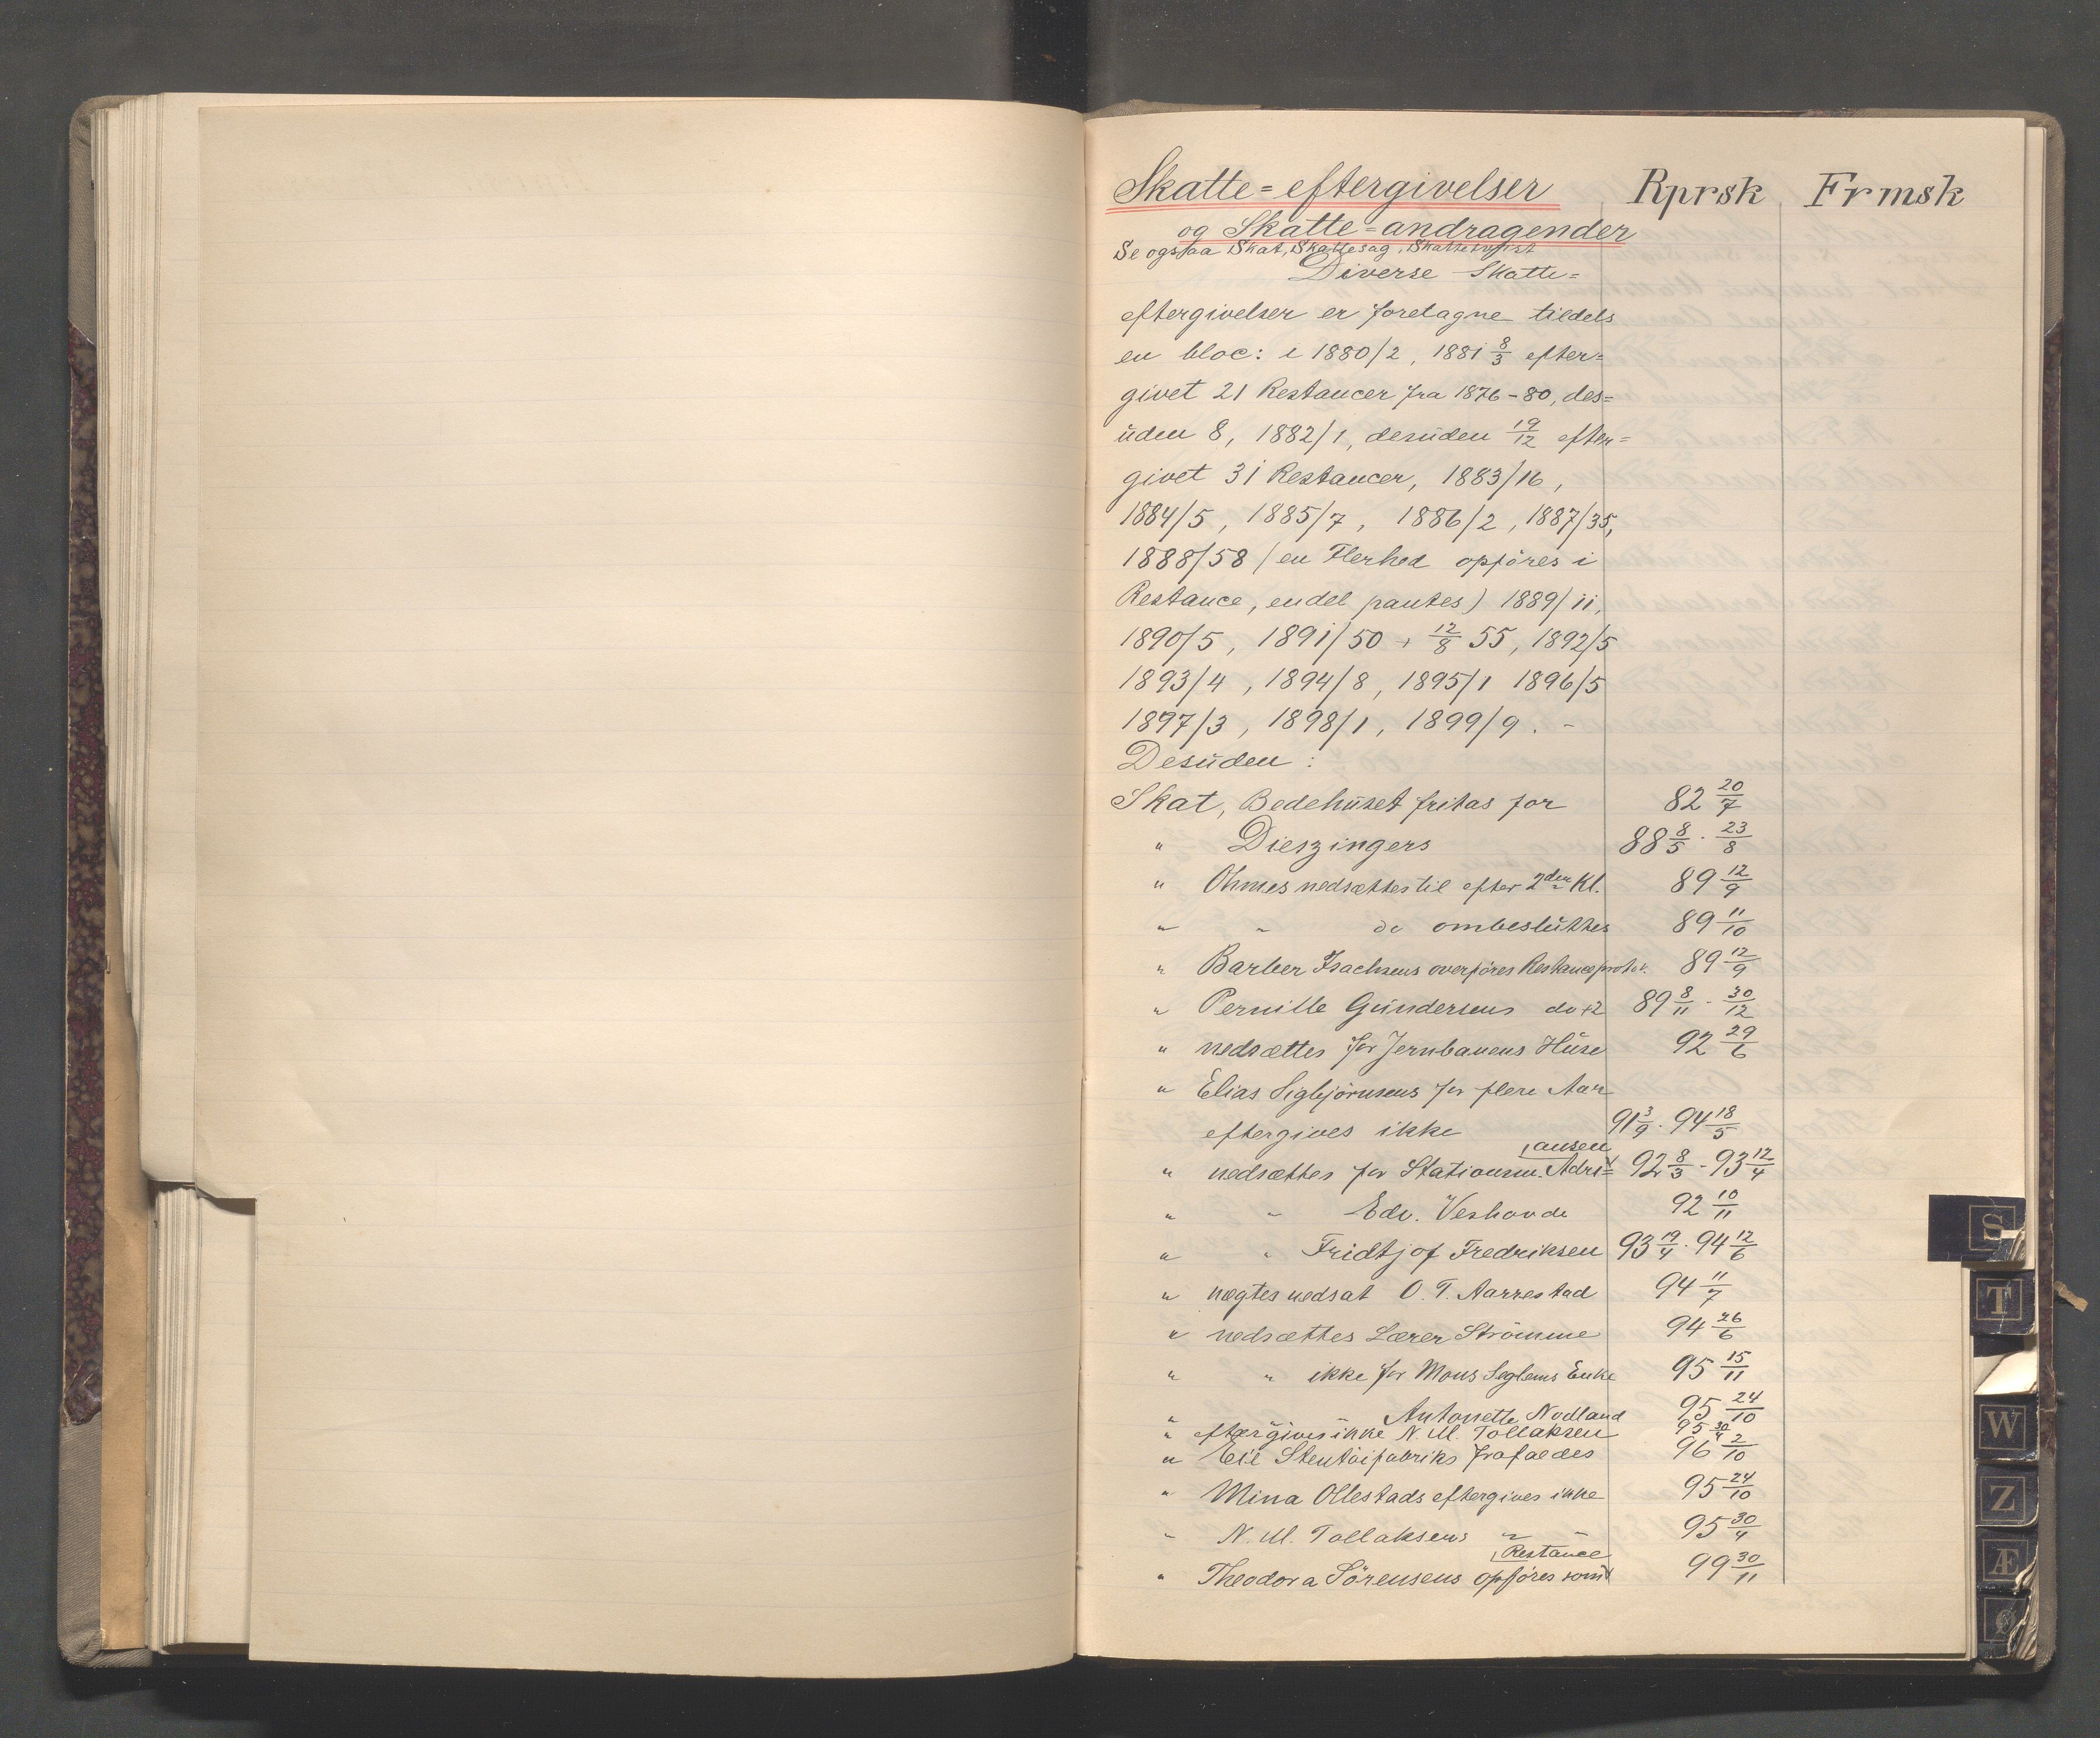 Skatte=eftergivelser Rprsk Frmsk
og Skatte=andragender
Se ogsaa Skat, Skattesag,
Diverse Skatte=
eftergivelser er foretagne tildels
en bloc: i 1880/2, 1881 8/3 efter=
givet 21 Restancer fra 1876-80, des=
uden 8, 1882/1, desuden 19/12 efter=
givet 31 Restancer, 1883/16,
1884/5, 1885/7, 1886/2, 1887/35,
1888/58 (en Flerhed opføres i
Restance, endel pantes) 1889/11,
1890/5, 1891/50 + 12/8 55, 1892/5
1893/4, 1894/8, 1895/1 1896/5
1897/3, 1898/1, 1899/9. -
Desuden:
Skat, Bedehuset fritas for 82 20/7
" Dieszingers 88 8/5 . 23/8
" Ohmes nedsættes til efter 2den Kl. 89 12/9
" " do ombesluttes 89 11/10
" Barber Isachsens overføres Restanceprotok. 89 12/9
" Pernille Gundersens do +2 89 8/11 - 30/12
" nedsættes for Jernbanens Huse 92 29/6
" Elias Sigbjørnsens for flere Aar
eftergives ikke 91 3/9 . 94 18/5
ansen
" nedsættes for Stationsm. Adri= 92 8/3 - 93 12/4
" " Edv. 92 10/11
" " Fridtjof Fredriksen 93 19/4 . 94 12/6
" nægtes nedsat O. T. Aarrestad 94 11/7
" nedsættes Lærer Strömme 94 26/6
" " ikke for Mons Seglems Enke 95 15/11
" " " Antonette Nodland 95 24/10
" eftergives ikke N. M. Tollaksen 95 30/4
" Eie Stentøifabriks frafaldes 96 2/10
" Mina Ollestads eftergives ikke 95 24/10
" N. M. Tollaksens " " 95 30/4
Restance
" Theodora Sørensens opføres som 99 30/11
S
T
W
Z
Æ
Ø